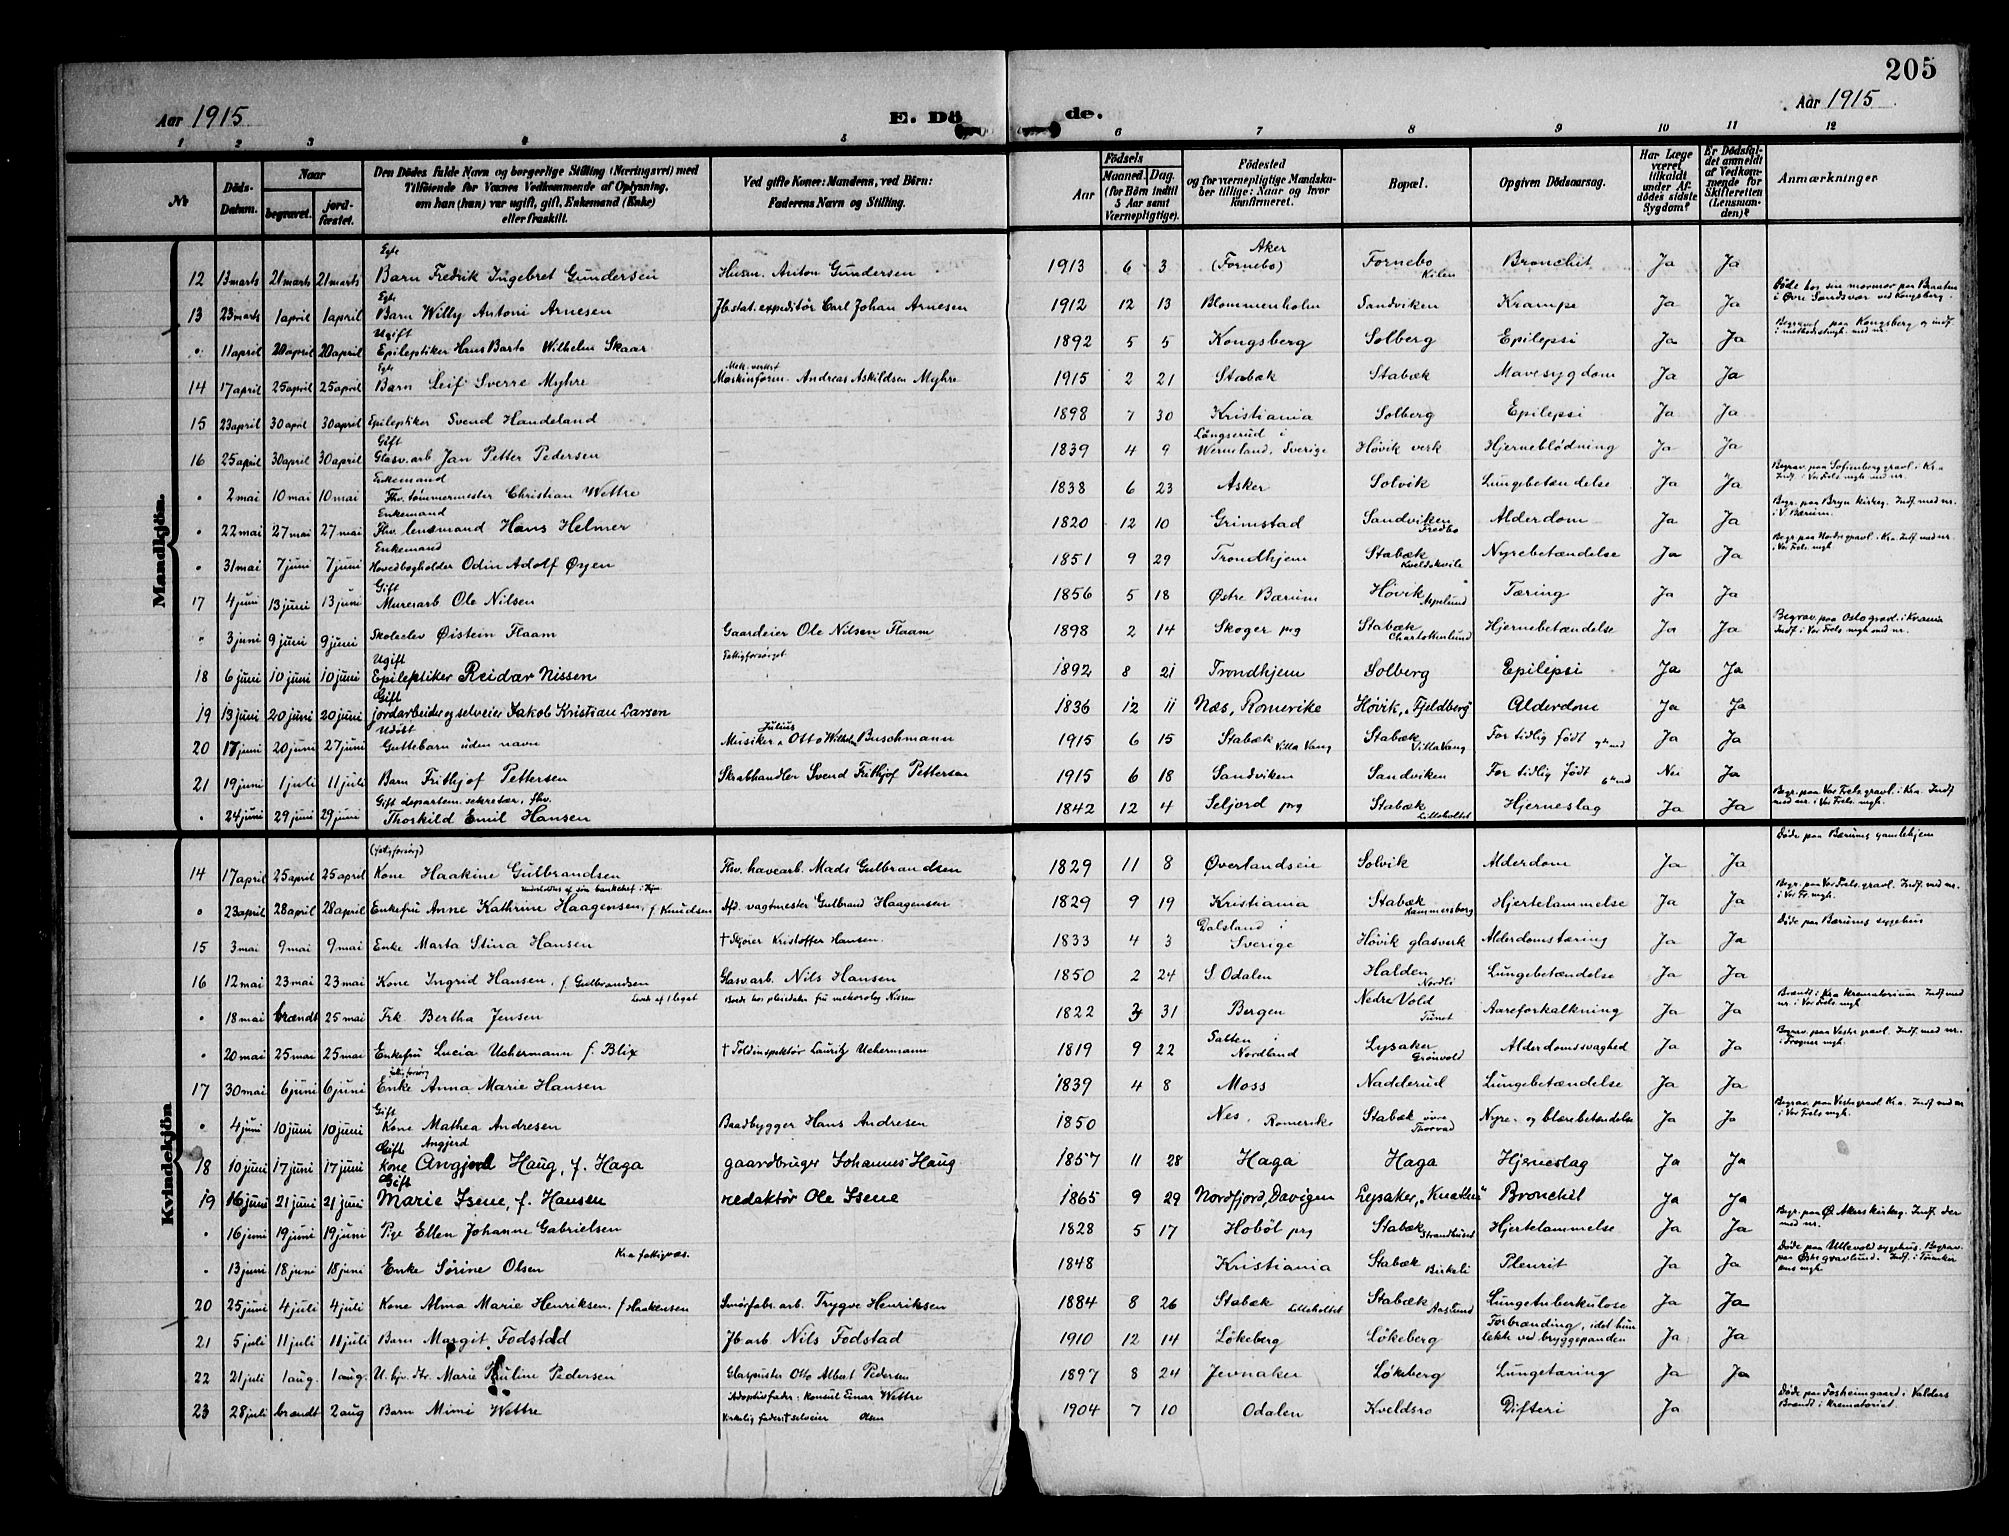 205
Aar 1915 E. Dö de. Aar 1915
1 2 3 4 5 6 7 8 9 10 11 12
№ Döds-Datum. Naar begravet. jordfæstet. Den Dödes fulde Navn og borgerlige Stilling (Næringsvei) med Tilföiende for Voxnes Vedkommende af Oplysning, om han (hun) var ugift, gift, Enkemand (Enke) eller fraskilt. Ved gifte Koner: Mandens, ved Börn: Faderens Navn og Stilling. Födsels Aar Maaned. Dag. (for Börn indtil 5 Aar samt Værnepligtige). Födested og for værnepligtige Mandskaber tillige: Naar og hvor konfirmeret. Bopæl. Opgiven Dödsaarsag. Har Læge været tilkaldt under Afdödes sidste Sygdom? Er Dödsfaldet anmeldt af Vedkommende for Skifteretten (Lensmanden)? Anmærkninger
Mandkjön.
12 13 marts 21 marts 21 marts Egte Barn Fredrik Ingebret Gundersen Husm. Anton Gundersen 1913 6 3 Aker (Fornebo) Fornebo Kilen Bronchit Ja Ja
13 23 marts 1 april 1 april Egte Barn Willy Antoni Arnesen Jb.stat.expeditør Carl Johan Arnesen 1912 12 13 Blommenholm Sandviken Krampe Ja Ja Døde hos sin mormor paa Braaten i Øvre Sandsvær ved Kongsberg.
" 11 april 20 april 20 april Ugift Epileptiker Hans Barto Wilhelm Skaar 1892 5 5 Kongsberg Solberg Epilepsi Ja Ja Begravet paa Kongsberg og indf. i methodistmgh. med nr.
14 17 april 25 april 25 april Egte Barn Leif Sverre Myhre Mek. verkst Maskinform. Andreas Askildsen Myhre 1915 2 21 Stabæk Stabæk Mavesygdom Ja Ja
15 23 april 30 april 30 april Epileptiker Svend Handeland 1898 7 30 Kristiania Solberg Epilepsi Ja Ja
16 25 april 30 april 30 april Gift Glasv.arb Jan Petter Pedersen 1839 4 9 Långserud i Werneland, Sverige Høvik verk Hjerneblödning Ja Ja
" 2 mai 10 mai 10 mai Enkemand Fhv. tømmermester Christian Wettre 1838 6 23 Asker Solvik Lungebetændelse Ja Ja Begrav. paa Sofienberg gravl. i Kr.a Indf. i Vor Frels mgh med nr.
" 22 mai 27 mai 27 mai Enkemand Fhv. lensmand Hans Helmer 1820 12 10 Grimstad Sandviken Fredbo Alderdom Ja Ja Begr. paa Bryn kirkeg. Indf. med nr. i V Bærum.
" 31 mai 7 juni 7 juni Enkemand Hovedbogholder Odin Adolf Øyen 1851 9 29 Trondhjem Stabæk Kveldshvile Nyrebetændelse Ja Ja Begr paa Nordre gravl. Kr.a. Indf med nr. i Vor Frels mgh
17 4 juni 13 juni 13 juni Gift Murerarb Ole Nilsen 1856 5 18 Østre Bærum Høvik Tæring Ja Ja
" 3 juni 9 juni 9 juni Skoleelev Øistein Flaam Gaardeier Ole Nilsen Flaam 1898 2 14 Skoger prg Stabæk Charlottenlund Hjernebetændelse Ja Ja Begrav. paa Oslo gravl. i Krania Indf. i Vor Frels mgh med nr.
18 6 juni 10 juni 10 juni Ugift Epileptiker Reidar Nissen Fattigforsørget 1892 8 21 Trondhjem Solberg Epilepsi Ja Ja
19 13 juni 20 juni 20 juni Gift jordarbeider og selveier Jakob Kristian Larsen 1836 12 11 Næs, Romerike Høvik, "Fjeldberg" Alderdom Ja Ja
20 17 juni 20 juni 27 juni Udöbt Guttebarn uden navn Musiker Julius Otto Wilhelm Buschmann 1915 6 15 Stabæk Villa Vang Stabæk Villa Vang For tidlig født Ja Ja
21 19 juni 1 juli 11 juli Barn Frithjof Pettersen Skrabhandler Svend Frithjof Pettersen 1915 6 18 Sandviken Sandviken For tidlig født Nei Ja
" 24 juni 29 juni 29 juni Gift departem. sekretær, fhv. Thorkild Emil Hansen 1842 12 4 Seljord prg Stabæk Lilleholtet Hjerneslag Ja Ja Begr. paa Vor Frels gravl. i Kr.a. Indf med nr. i Vor Frels. mgh.
Kvindekjön
14 17 april 25 april 25 april (fattigforsørg) Kone Haakine Gulbrandsen Fhv. havearb. Mads Gulbrandsen 1829 11 8 Øverlandseie Solvik Alderdom Ja Ja Døde paa Bærums gamlehjem
" 23 april 28 april 28 april Underholdes af søn bankchef i Kra. Enkefru Anne Kathrine Haagensen, f Knudsen Afd. vagtmester Gulbrand Haagensen 1829 9 19 Kristiania Stabæk Kammersborg Hjertelammelse Ja Ja Begr. paa Vor Frels. gravl. Indf. med nr. i Vor Fr. mgh.
15 3 mai 9 mai 9 mai Enke Marta Stina Hansen † Skjører Kristoffer Hansen. 1833 4 3 Dalsland i Sverige Høvik glasverk Alderdomstæring Ja Ja Døde paa Bærums sygehus
16 12 mai 23 mai 23 mai Kone Ingrid Hansen, f. Gulbrandsen Glasv.arb. Nils Hansen 1850 2 24 S. Odalen Halden Nordli Lungebetændelse Ja Ja
" 18 mai brændt 25 mai Levde af 1 legat Frk Bertha Jensen Boede hos pleiedatter fru meteorolog Nissen 1822 3 31 Bergen Nedre Vold Tunet Aareforkalkning Ja Ja Brændt i Kra Krematorium. Indf med nr. i Vor Frels mgh
" 20 mai 25 mai 25 mai Enkefru Lucia Uchermann f. Blix † Toldinspektør Lauritz Uchermann 1819 9 22 Salten i Nordland Lysaker Grønvold Alderdomssvaghed Ja Ja Begrav. paa Vestre gravl. Indf. med nr. i Frogner mgh.
17 30 mai 6 juni 6 juni fattigforsørg Enke Anna Marie Hansen 1839 4 8 Moss Nadderud Lungebetændelse Ja Ja
" 4 juni 10 juni 10 juni Gift Kone Mathea Andresen Baadbygger Hans Andresen 1850 Nes, Romerike Stabæk øvre Thorvad Nyre- og blærebetændelse Ja Ja Begrav. paa Vestre gravl Kr.a. Indf med nr i Vor Frels mgh.
18 10 juni 17 juni 17 juni Gift Kone Angjerd Angjerd Haug, f. Haga gaardbruger Johannes Haug 1857 11 28 Haga Haga Hjerneslag Ja Ja
19 16 juni 21 juni 21 juni Gift Marie Isene, f. Hansen redaktør Ole Isene 1865 9 29 Nordfjord, Davigen Lysaker, "Knatten" Bronchit Ja Ja
" 16 juni 19 juni 19 juni Pige Ellen Johanne Gabrielsen 1828 5 17 Hobøl prg Stabæk Strandhuset Hjertelammelse Ja Ja Begr. paa Ø. Akers kirkeg. Indf. der med nr.
" 13 juni 18 juni 18 juni Enke Sørine Olsen Kra fattigvæs. 1848 Kristiania Stabæk Birkeli Pleurit Ja Ja Døde paa Ullevold sygehus. Begrav. paa Østre gravlund. Indf. i mgh
20 25 juni 4 juli 4 juli Kone Alma Marie Henriksen, f Haakensen Smørfabr.arb. Trygve Henriksen 1884 8 26 Stabæk Lilleholtet Stabæk Aaslund Lungetuberkulose Ja Ja
21 5 juli 11 juli 11 juli Barn Margit Fodstad Jb arb Nils Fodstad 1910 12 14 Løkeberg Løkeberg Forbrænding, idet hun lekte ved bryggepanden Ja Ja
22 21 juli 1 aug. 1 aug. U. hjv. dtr. Marie Pauline Pedersen Glaspuster Otto Albert Pedersen 1897 8 24 Jevnaker Løkeberg Lungetæring Ja Ja
23 28 juli brændt 2 aug Barn Mimi Wettre Adoptivfader: Konsul Einar Wettre Kirkelig fader: † selveier Olsen 1904 7 10 Odalen Kveldsro Difteri Ja Døde paa Fosheimgaard i Valders Brændt i Krematoriet.